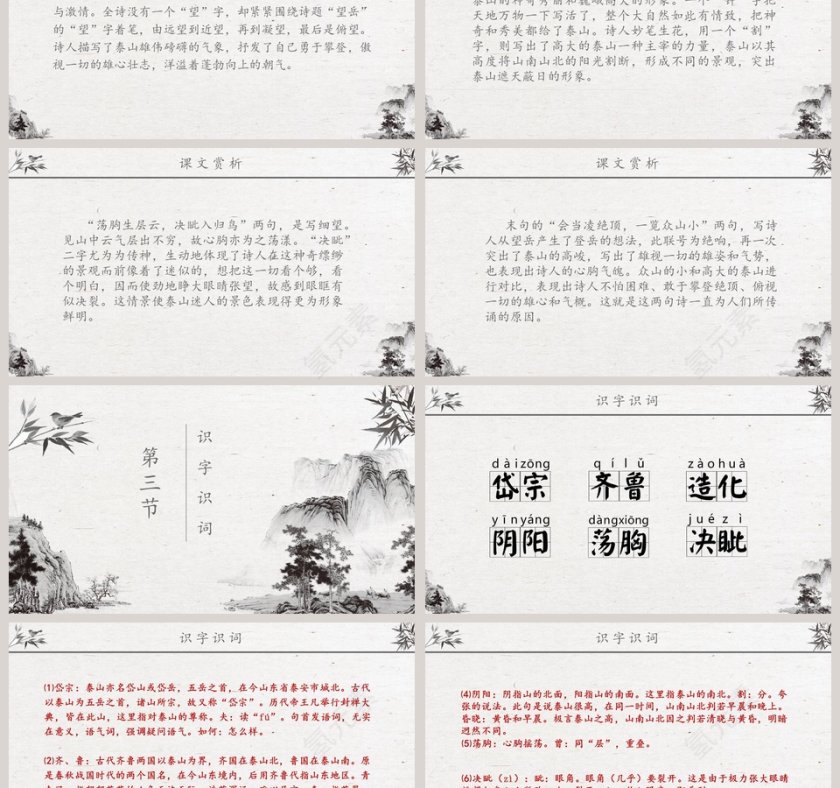 与激情。全诗没有一个“望”字，却紧紧围绕诗题“望岳”
的“望”字着笔，由远望到近望，再到凝望，最后是俯望。
诗人描写了泰山雄伟磅礴的气象，抒发了自己勇于攀登，傲
视一切的雄心壮志，洋溢着蓬勃向上的朝气。
天地万物一下写活了，整个大自然如此有情致，把神
奇和秀美都给了泰山。诗人妙笔生花，用一个“割”
字，则写出了高大的泰山一种主宰的力量，泰山以其
高度将山南山北的阳光割断，形成不同的景观，突出
泰山遮天蔽日的形象。
课文赏析
“荡胸生层云，决眦入归鸟”两句，是写细望。
见山中云气层出不穷，故心胸亦为之荡漾。“决眦”
二字尤为为传神，生动地体现了诗人在这神奇缥缈
的景观而前像着了迷似的，想把这一切看个够，看
个明白，因而使劲地睁大眼睛张望，故感到眼眶有
似决裂。这情景使泰山迷人的景色表现得更为形象
鲜明。
课文赏析
末句的“会当凌绝顶，一览众山小”两句，写诗
人从望岳产生了登岳的想法，此联号为绝响，再一次
突出了泰山的高峻，写出了雄视一切的雄姿和气势，
也表现出诗人的心胸气魄。众山的小和高大的泰山进
行对比，表现出诗人不怕困难、敢于攀登绝顶、俯视
一切的雄心和气概。这就是这两句诗一直为人们所传
诵的原因。
第三节
识字识词
识字识词
dàizōng qílǔ zàohuà
岱宗 齐鲁 造化
yīnyáng dàngxiōng juézì
阴阳 荡胸 决眦
识字识词
(1)岱宗：泰山亦名岱山或岱岳，五岳之首，在今山东省泰安市城北。古代
以泰山为五岳之首，诸山所宗，故又称“岱宗”。历代帝王凡举行封禅大
典，皆在此山，这里指对泰山的尊称。夫：读“fú”。句首发语词，无实
在意义，语气词，强调疑问语气。如何：怎么样。
(2)齐、鲁：古代齐鲁两国以泰山为界，齐国在泰山北，鲁国在泰山南。原
是春秋战国时代的两个国名，在今山东境内，后用齐鲁代指山东地区。青
识字识词
(4)阴阳：阴指山的北面，阳指山的南面。这里指泰山的南北。割：分。夸
张的说法。此句是说泰山很高，在同一时间，山南山北判若早晨和晚上。
昏晓：黄昏和早晨。极言泰山之高，山南山北因之判若清晓与黄昏，明暗
迥然不同。
(5)荡胸：心胸摇荡。曾：同“层”，重叠。
(6)决眦（zì）：眦：眼角。眼角（几乎）要裂开。这是由于极力张大眼睛
氢元素
氢元素